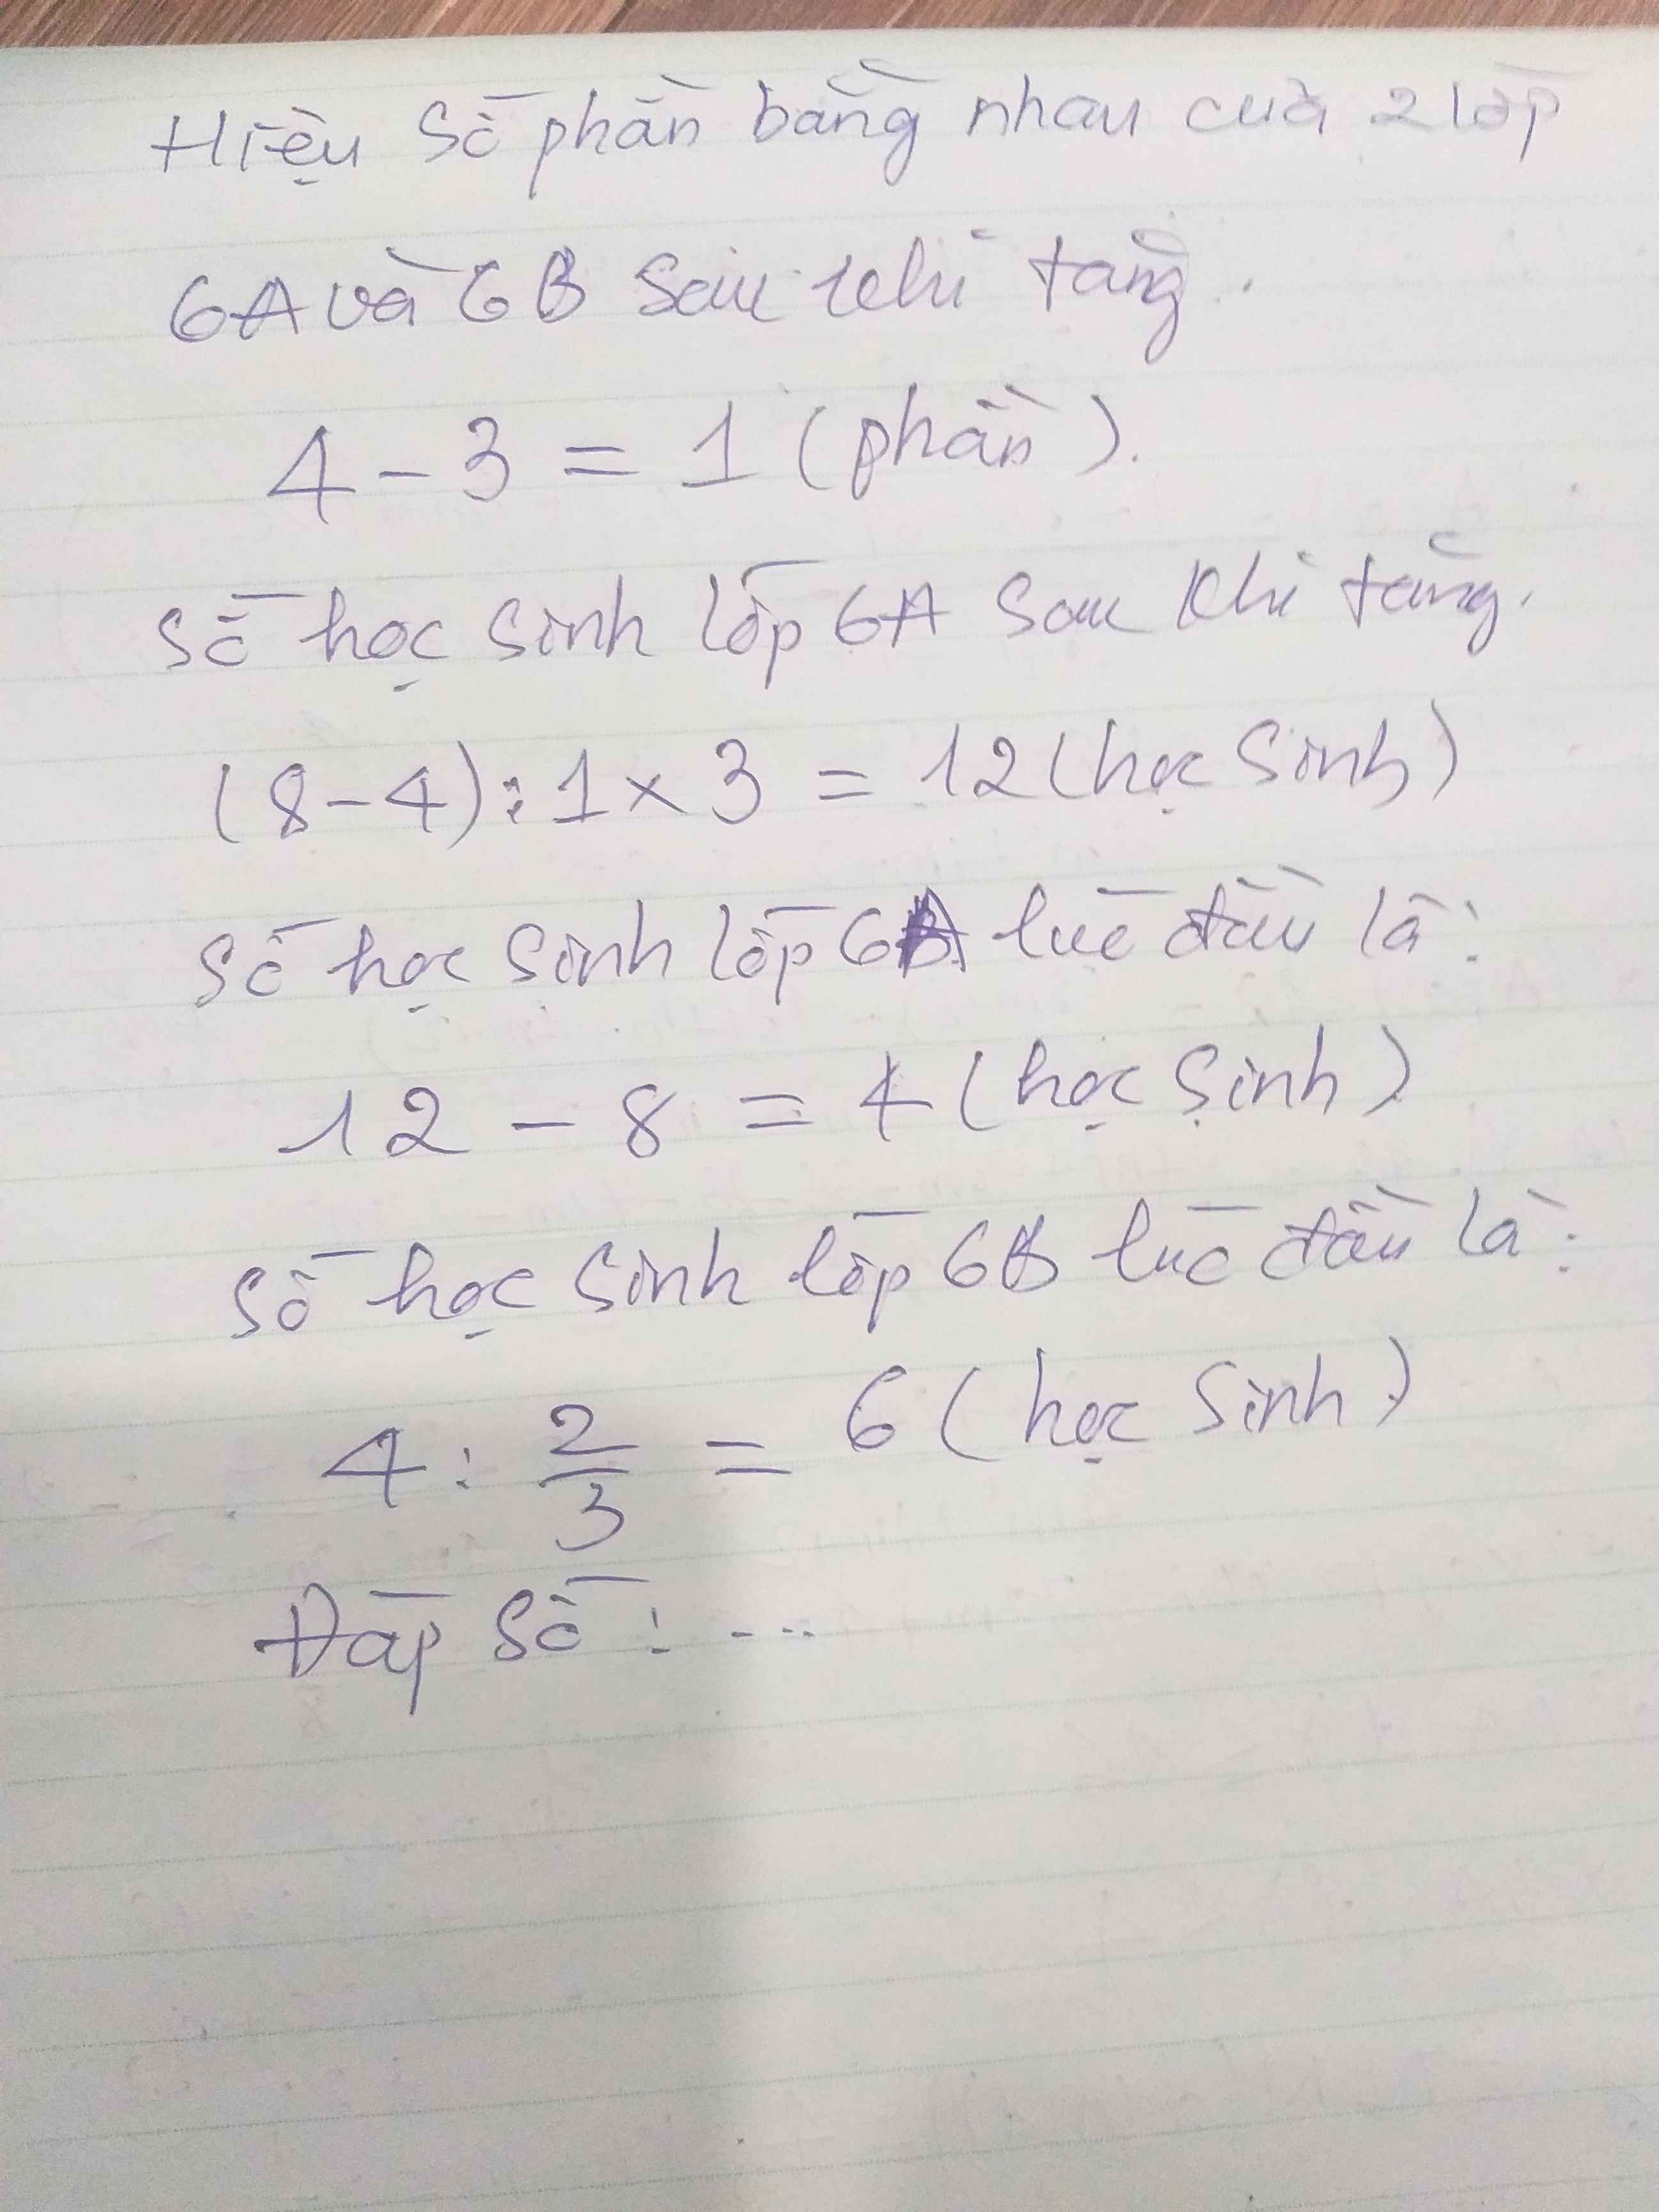 Hiệu số phần bằng nhau của 2 lớp
6A và 6B sau khi tăng.
4 - 3 = 1 (phần).
Số học sinh lớp 6A sau khi tăng.
(8-4):1 x 3 = 12 (học sinh)
Số học sinh lớp 6A lúc đầu là:
12 - 8 = 4 (học sinh)
Số học sinh lớp 6B lúc đầu là:
4 : 2/3 = 6 (học sinh)
Đáp số: ...